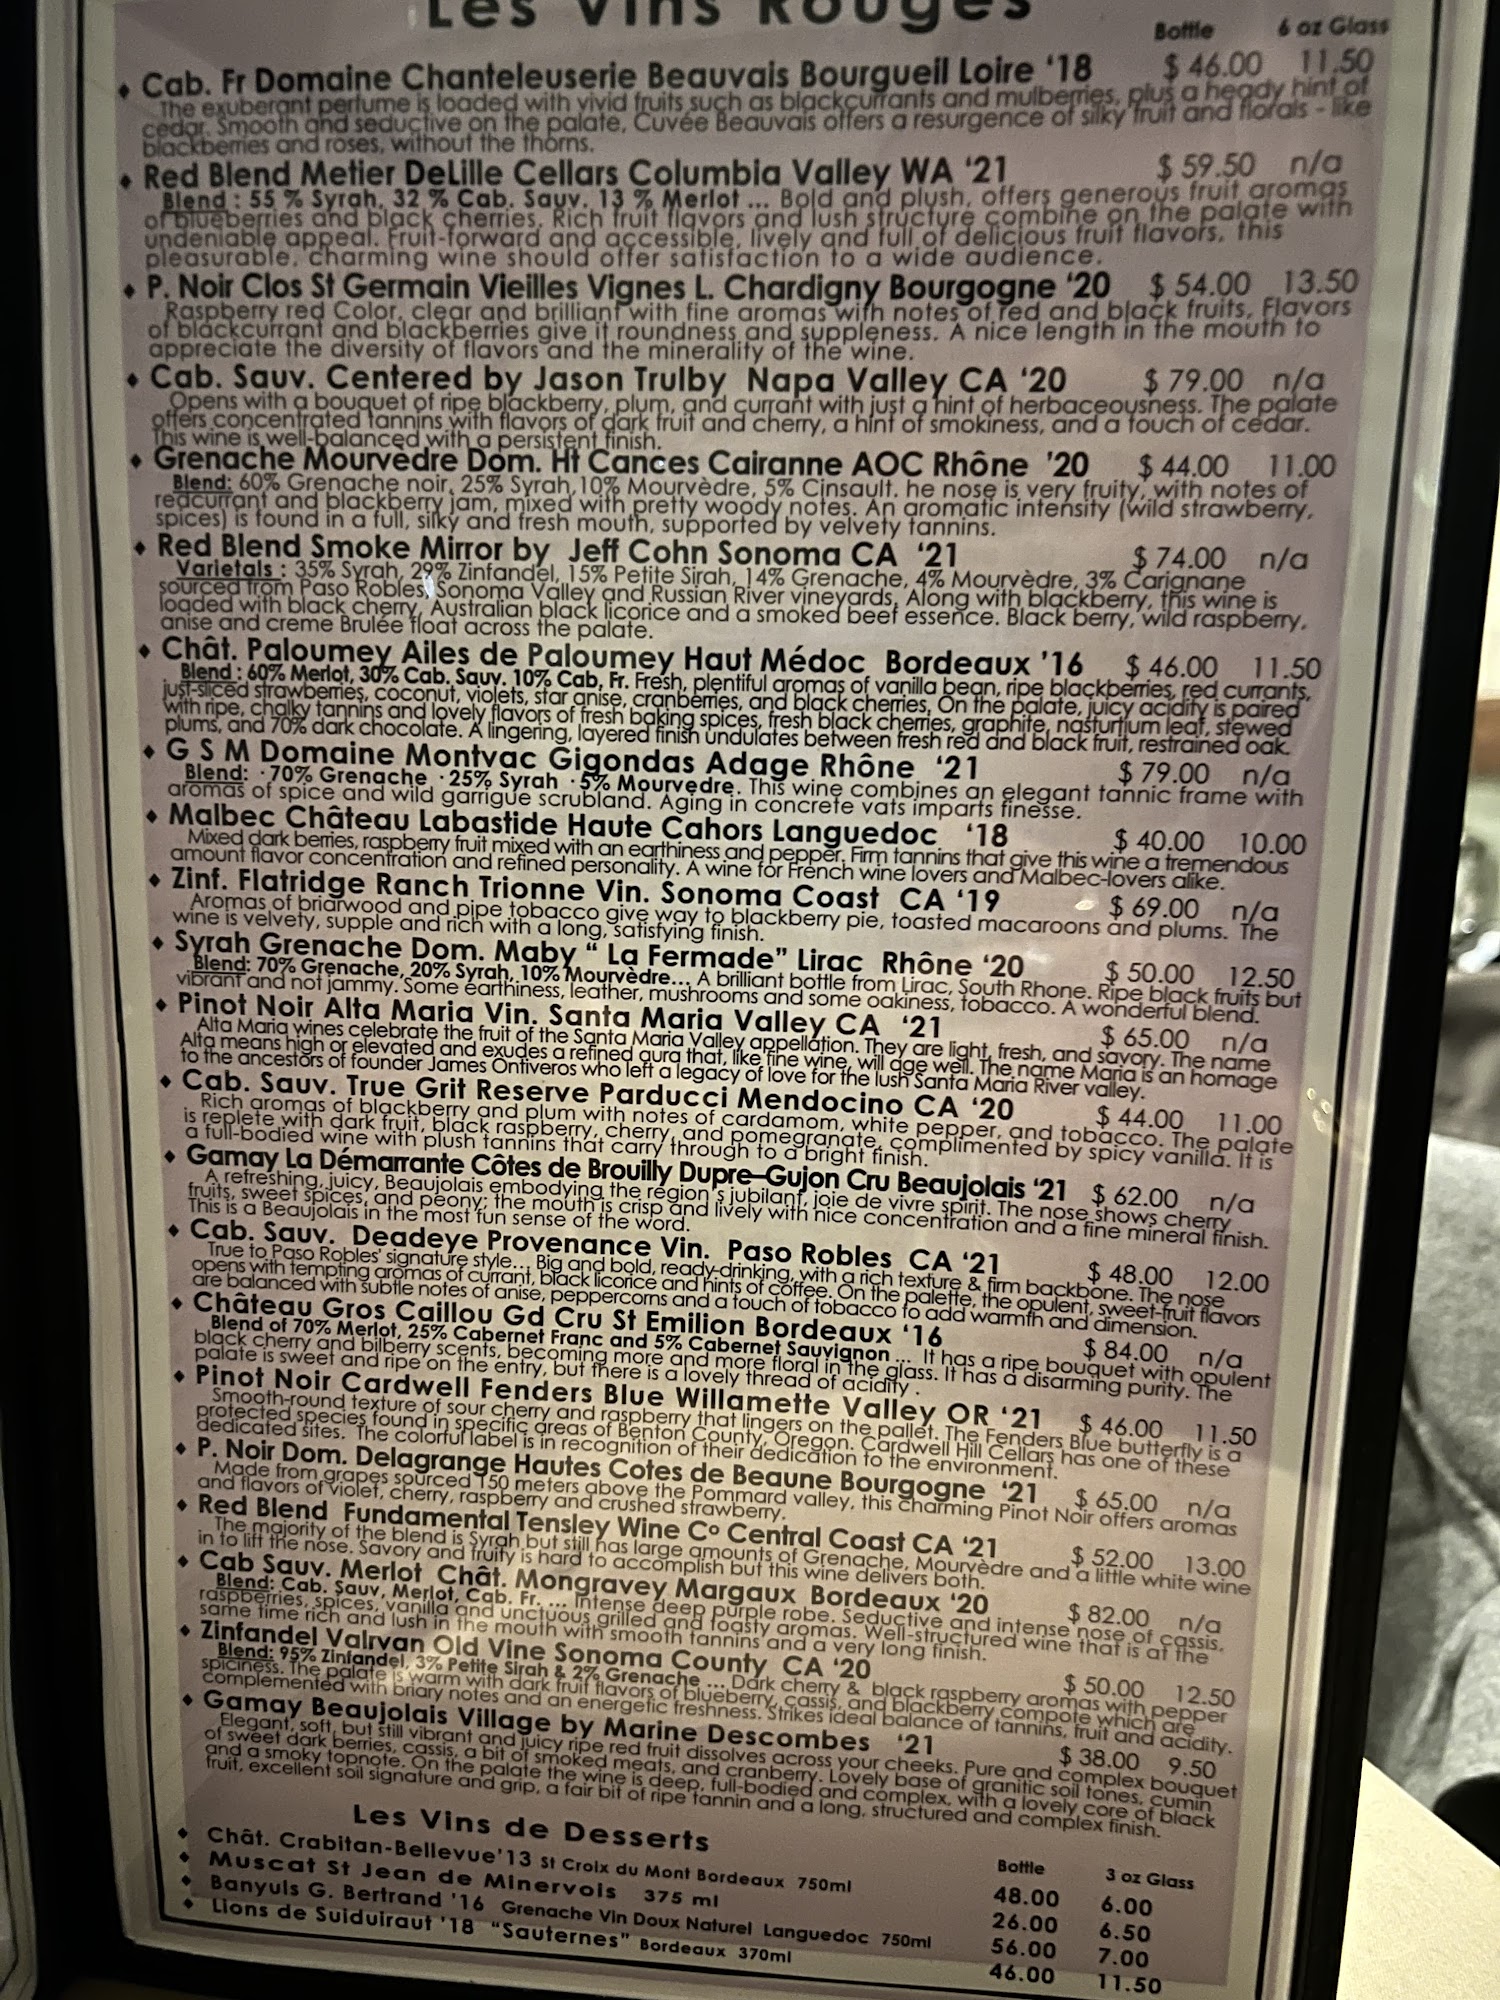 Les Vins Rouges
Bottle 6 oz Glass
♦ Cab. Fr Domaine Chanteleuserie Beauvais Bourgueil Loire '18 $ 46.00 11.50
The exuberant perfume is loaded with vivid fruits such as blackcurrants and mulberries, plus a heady hint of
cedar. Smooth and seductive on the palate, Cuvée Beauvais offers a resurgence of silky fruit and florals - like
blackberries and roses, without the thorns.
♦ Red Blend Metier DeLille Cellars Columbia Valley WA '21 $ 59.50 n/a
Blend : 55 % Syrah, 32 % Cab. Sauv. 13 % Merlot ... Bold and plush, offers generous fruit aromas
of blueberries and black cherries. Rich fruit flavors and lush structure combine on the palate with
undeniable appeal. Fruit-forward and accessible, lively and full of delicious fruit flavors, this
pleasurable, charming wine should offer satisfaction to a wide audience.
♦ P. Noir Clos St Germain Vieilles Vignes L. Chardigny Bourgogne '20 $ 54.00 13.50
Raspberry red Color, clear and brilliant with fine aromas with notes of red and black fruits, Flavors
of blackcurrant and blackberries give it roundness and suppleness. A nice length in the mouth to
appreciate the diversity of flavors and the minerality of the wine.
♦ Cab. Sauv. Centered by Jason Trulby Napa Valley CA '20 $ 79.00 n/a
Opens with a bouquet of ripe blackberry, plum, and currant with just a hint of herbaceousness. The palate
offers concentrated tannins with flavors of dark fruit and cherry, a hint of smokiness, and a touch of cedar.
This wine is well-balanced with a persistent finish.
♦ Grenache Mourvèdre Dom. Ht Cances Cairanne AOC Rhône '20 $ 44.00 11.00
Blend: 60% Grenache noir, 25% Syrah, 10% Mourvèdre, 5% Cinsault. he nose is very fruity, with notes of
redcurrant and blackberry jam, mixed with pretty woody notes. An aromatic intensity (wild strawberry,
spices) is found in a full, silky and fresh mouth, supported by velvety tannins.
♦ Red Blend Smoke Mirror by Jeff Cohn Sonoma CA '21 $ 74.00 n/a
Varietals : 35% Syrah, 29% Zinfandel, 15% Petite Sirah, 14% Grenache, 4% Mourvèdre, 3% Carignane
sourced from Paso Robles, Sonoma Valley and Russian River vineyards, Along with blackberry, this wine is
loaded with black cherry, Australian black licorice and a smoked beef essence. Black berry, wild raspberry,
anise and creme Brulée float across the palate.
♦ Chât. Paloumey Ailes de Paloumey Haut Médoc Bordeaux '16 $ 46.00 11.50
Blend : 60% Merlot, 30% Cab. Sauv. 10% Cab, Fr. Fresh, plentiful aromas of vanilla bean, ripe blackberries, red currants,
just-sliced strawberries, coconut, violets, star anise, cranberries, and black cherries, On the palate, juicy acidity is paired
with ripe, chalky tannins and lovely flavors of fresh baking spices, fresh black cherries, graphite, nasturtium leaf, stewed
plums, and 70% dark chocolate. A lingering, layered finish undulates between fresh red and black fruit, restrained oak.
♦ G S M Domaine Montvac Gigondas Adage Rhône '21 $ 79.00 n/a
Blend: ·70% Grenache ·25% Syrah ·5% Mourvedre. This wine combines an elegant tannic frame with
aromas of spice and wild garrigue scrubland. Aging in concrete vats imparts finesse.
♦ Malbec Château Labastide Haute Cahors Languedoc '18 $ 40.00 10.00
Mixed dark berries, raspberry fruit mixed with an earthiness and pepper. Firm tannins that give this wine a tremendous
amount flavor concentration and refined personality. A wine for French wine lovers and Malbec-lovers alike.
♦ Zinf. Flatridge Ranch Trionne Vin. Sonoma Coast CA '19 $ 69.00 n/a
Aromas of briarwood and pipe tobacco give way to blackberry pie, toasted macaroons and plums. The
wine is velvety, supple and rich with a long, satisfying finish.
♦ Syrah Grenache Dom. Maby " La Fermade" Lirac Rhône '20 $ 50.00 12.50
Blend: 70% Grenache, 20% Syrah, 10% Mourvèdre... A brilliant bottle from Lirac, South Rhone. Ripe black fruits but
vibrant and not jammy. Some earthiness, leather, mushrooms and some oakiness, tobacco. A wonderful blend.
♦ Pinot Noir Alta Maria Vin. Santa Maria Valley CA '21 $ 65.00 n/a
Alta Maria wines celebrate the fruit of the Santa Maria Valley appellation. They are light, fresh, and savory. The name
Alta means high or elevated and exudes a refined aura that, like fine wine, will age well. The name Maria is an homage
to the ancestors of founder James Ontiveros who left a legacy of love for the lush Santa Maria River valley.
♦ Cab. Sauv. True Grit Reserve Parducci Mendocino CA '20 $ 44.00 11.00
Rich aromas of blackberry and plum with notes of cardamom, white pepper, and tobacco. The palate
is replete with dark fruit, black raspberry, cherry, and pomegranate, complimented by spicy vanilla. It is
a full-bodied wine with plush tannins that carry through to a bright finish.
♦ Gamay La Démarrante Côtes de Brouilly Dupre–Gujon Cru Beaujolais '21 $ 62.00 n/a
A refreshing, juicy, Beaujolais embodying the region's jubilant, joie de vivre spirit. The nose shows cherry
fruits, sweet spices, and peony; the mouth is crisp and lively with nice concentration and a fine mineral finish.
This is a Beaujolais in the most fun sense of the word.
♦ Cab. Sauv. Deadeye Provenance Vin. Paso Robles CA '21 $ 48.00 12.00
True to Paso Robles' signature style... Big and bold, ready-drinking, with a rich texture & firm backbone. The nose
opens with tempting aromas of currant, black licorice and hints of coffee. On the palette, the opulent, sweet-fruit flavors
are balanced with subtle notes of anise, peppercorns and a touch of tobacco to add warmth and dimension.
♦ Château Gros Caillou Gd Cru St Emilion Bordeaux '16 $ 84.00 n/a
Blend of 70% Merlot, 25% Cabernet Franc and 5% Cabernet Sauvignon ... It has a ripe bouquet with opulent
black cherry and bilberry scents, becoming more and more floral in the glass. It has a disarming purity. The
palate is sweet and ripe on the entry, but there is a lovely thread of acidity .
♦ Pinot Noir Cardwell Fenders Blue Willamette Valley OR '21 $ 46.00 11.50
Smooth-round texture of sour cherry and raspberry that lingers on the pallet. The Fenders Blue butterfly is a
protected species found in specific areas of Benton County, Oregon. Cardwell Hill Cellars has one of these
dedicated sites. The colorful label is in recognition of their dedication to the environment.
♦ P. Noir Dom. Delagrange Hautes Cotes de Beaune Bourgogne '21 $ 65.00 n/a
Made from grapes sourced 150 meters above the Pommard valley, this charming Pinot Noir offers aromas
and flavors of violet, cherry, raspberry and crushed strawberry.
♦ Red Blend Fundamental Tensley Wine Cº Central Coast CA '21 $ 52.00 13.00
The majority of the blend is Syrah but still has large amounts of Grenache, Mourvèdre and a little white wine
in to lift the nose. Savory and fruity is hard to accomplish but this wine delivers both.
♦ Cab Sauv. Merlot Chât. Mongravey Margaux Bordeaux '20 $ 82.00 n/a
Blend: Cab. Sauv, Merlot, Cab. Fr. ... Intense deep purple robe. Seductive and intense nose of cassis,
raspberries, spices, vanilla and unctuous grilled and toasty aromas. Well-structured wine that is at the
same time rich and lush in the mouth with smooth tannins and a very long finish.
♦ Zinfandel Valrvan Old Vine Sonoma County CA '20 $ 50.00 12.50
Blend: 95% Zinfandel, 3% Petite Sirah & 2% Grenache ... Dark cherry & black raspberry aromas with pepper
spiciness. The palate is warm with dark fruit flavors of blueberry, cassis, and blackberry compote which are
complemented with briary notes and an energetic freshness. Strikes ideal balance of tannins, fruit and acidity.
♦ Gamay Beaujolais Village by Marine Descombes '21 $ 38.00 9.50
Elegant, soft, but still vibrant and juicy ripe red fruit dissolves across your cheeks. Pure and complex bouquet
of sweet dark berries, cassis, a bit of smoked meats, and cranberry. Lovely base of granitic soil tones, cumin
and a smoky topnote. On the palate the wine is deep, full-bodied and complex, with a lovely core of black
fruit, excellent soil signature and grip, a fair bit of ripe tannin and a long, structured and complex finish.
Les Vins de Desserts Bottle 3 oz Glass
♦ Chât. Crabitan-Bellevue'13 St Croix du Mont Bordeaux 750ml 48.00 6.00
♦ Muscat St Jean de Minervois 375 ml 26.00 6.50
♦ Banyuls G. Bertrand '16 Grenache Vin Doux Naturel Languedoc 750ml 56.00 7.00
♦ Lions de Suiduiraut '18 "Sauternes" Bordeaux 370ml 46.00 11.50